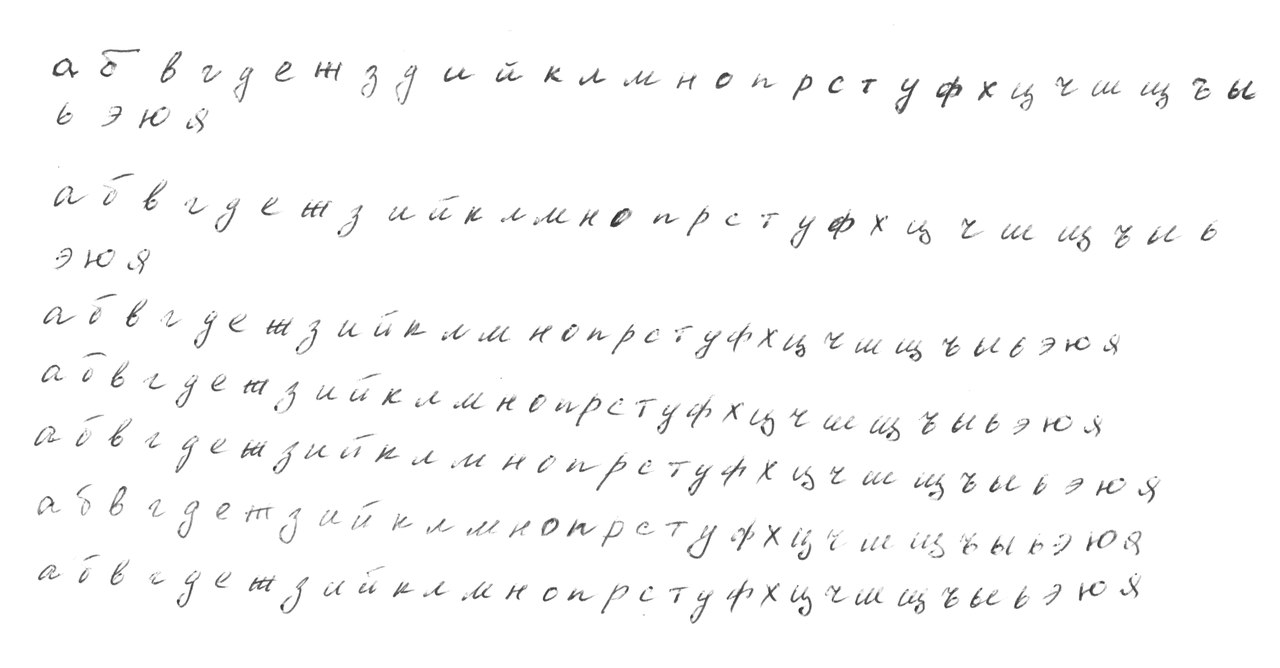 а б в г д е ж з д и й к л м н о п р с т у ф х ц ч ш щ ъ ы
ь э ю я
а б в г д е ж з и й к л м н о п р с т у ф х ц ч ш щ ъ ы ь
э ю я
а б в г д е ж з и й к л м н о п р с т у ф х ц ч ш щ ъ ы ь э ю я
а б в г д е ж з и й к л м н о п р с т у ф х ц ч ш щ ъ ы ь э ю я
а б в г д е ж з и й к л м н о п р с т у ф х ц ч ш щ ъ ы ь э ю я
а б в г д е ж з и й к л м н о п р с т у ф х ц ч ш щ ъ ы ь э ю я
а б в г д е ж з и й к л м н о п р с т у ф х ц ч ш щ ъ ы ь э ю я